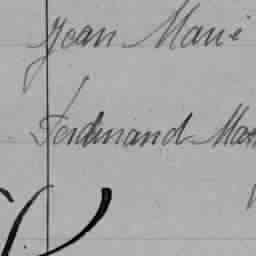 Jean Marie
Ferdinand Mar